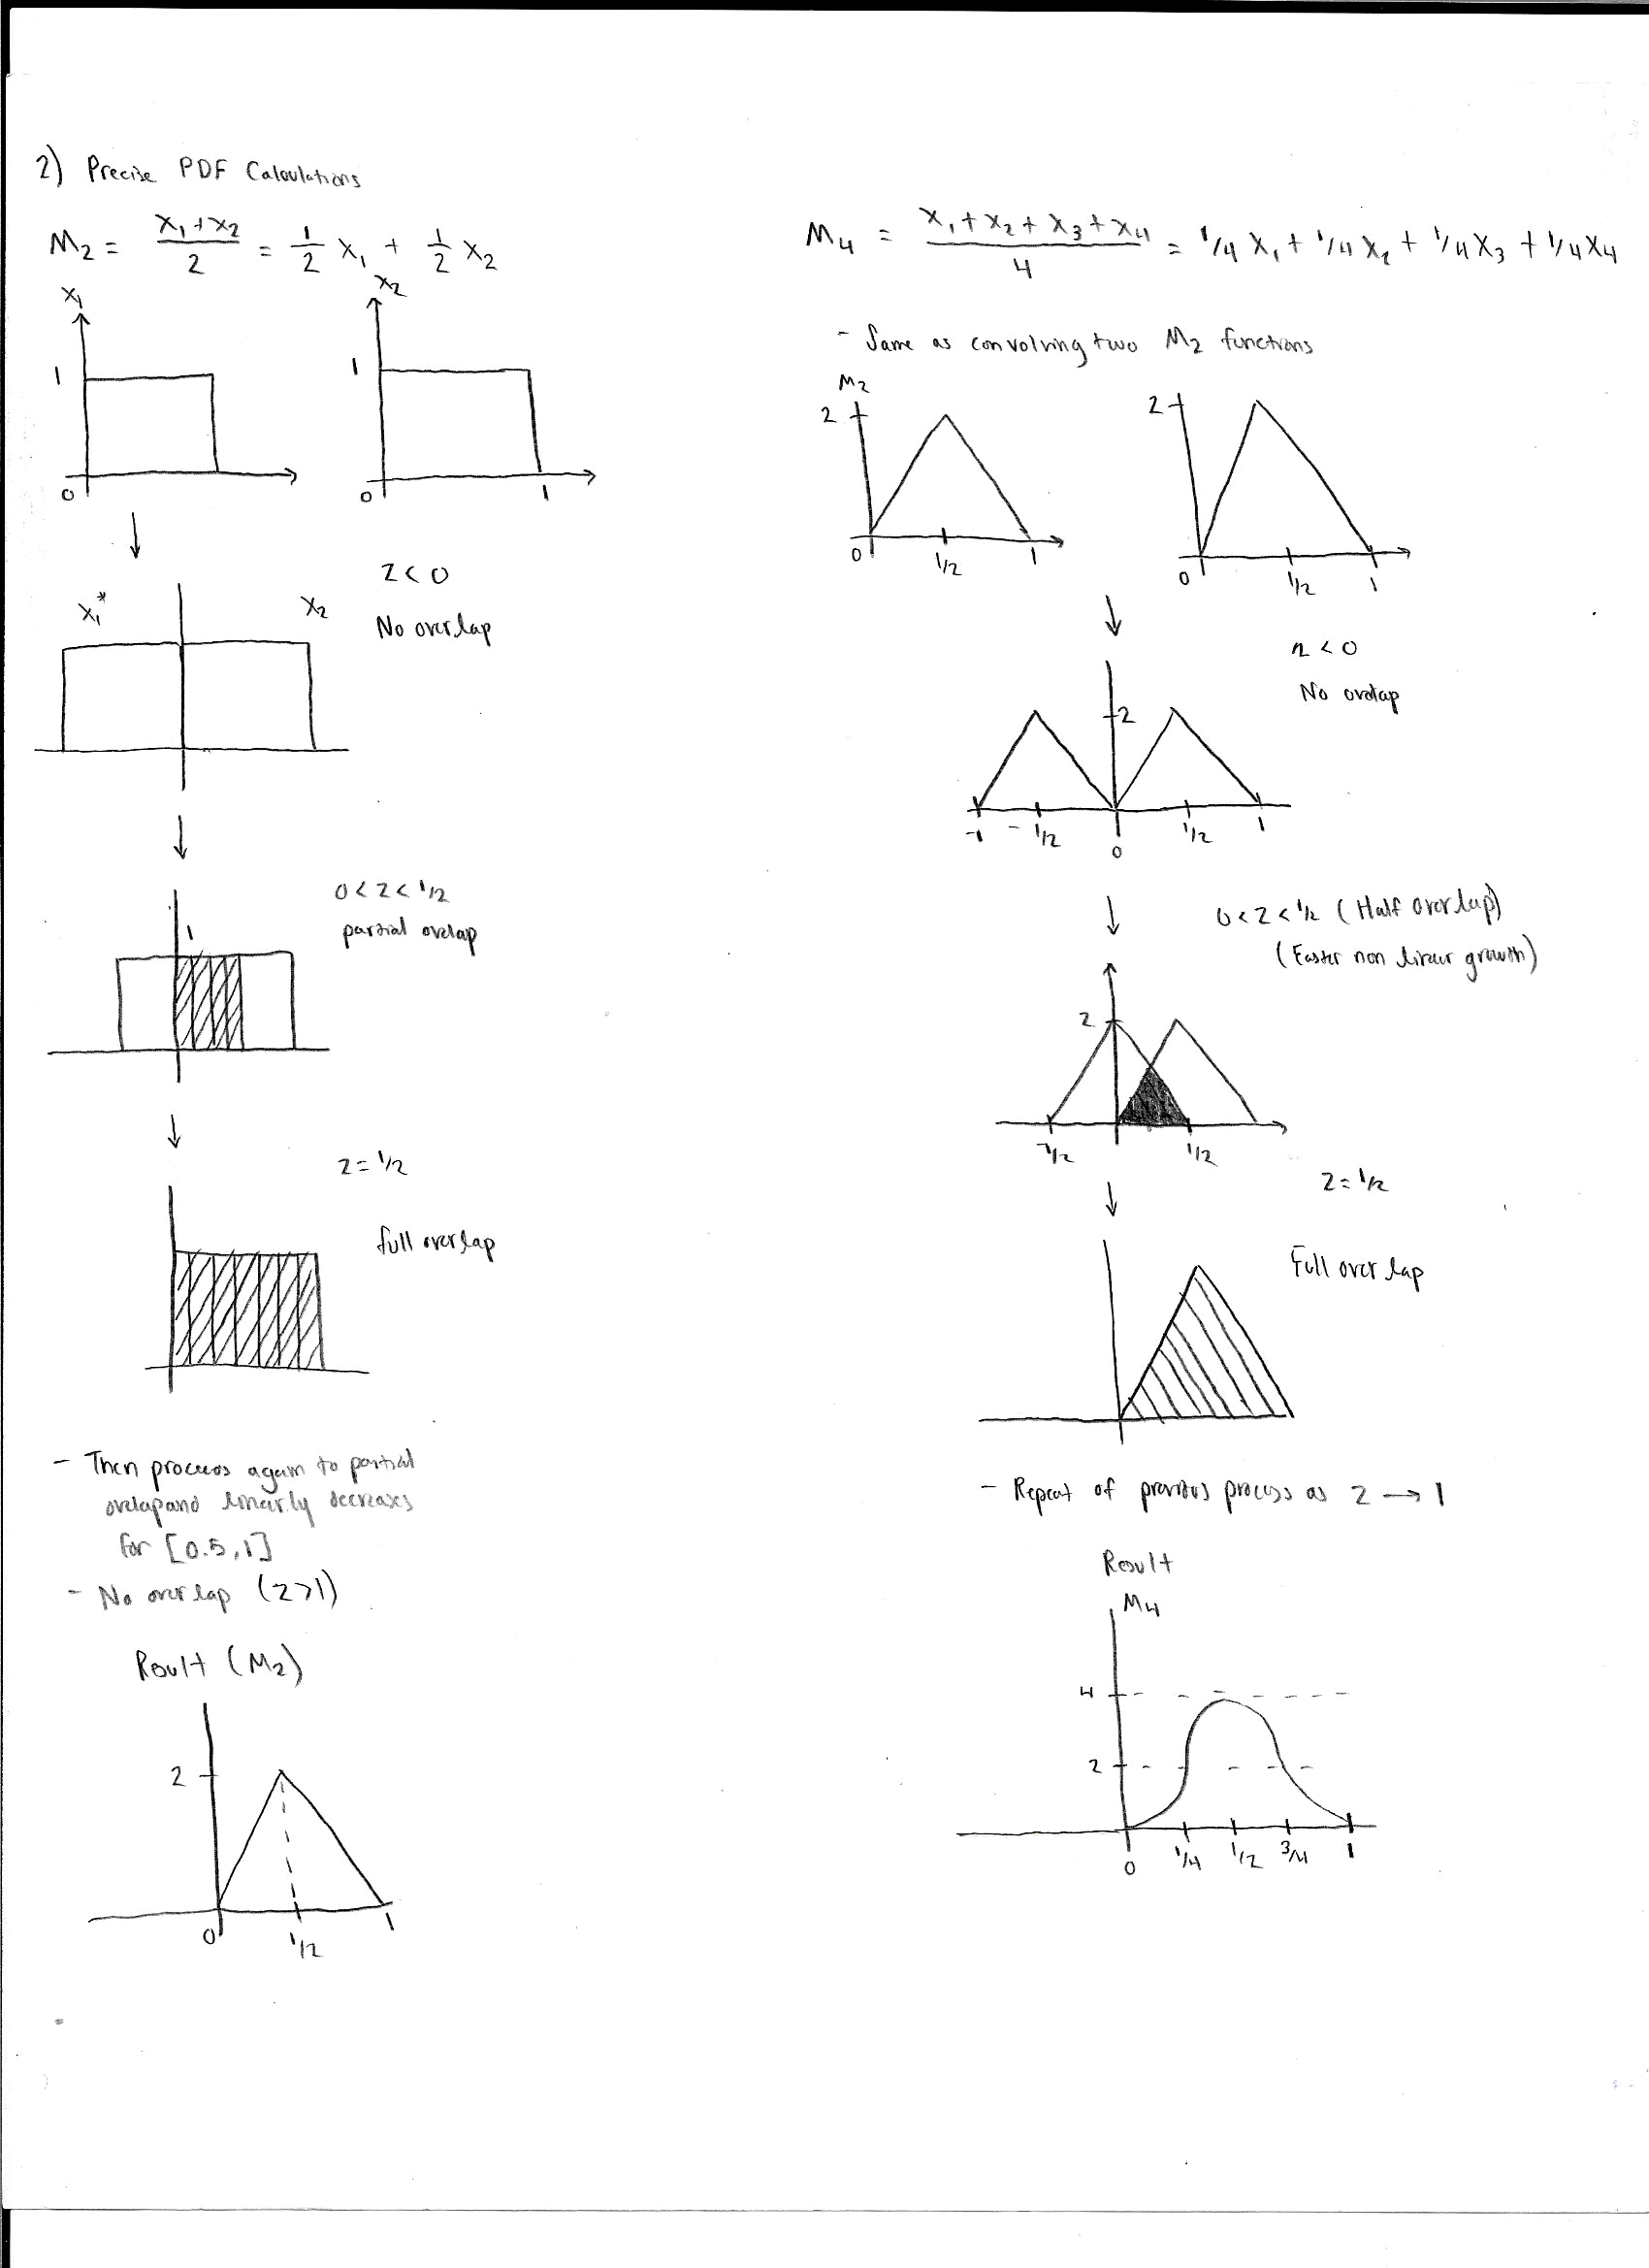 2) Precise PDF Calculations
M2 = x1+x2 / 2 = 1/2 x1 + 1/2 x2
x1
x2
1
0
1
0
1
x1*
x2
z<0
No overlap
0<z<1/2
partial ovelap
1
z=1/2
full overlap
- Then process again to partial
ovelap and linearly decreases
for [0.5,1]
- No overlap (z>1)
Result (M2)
2
0
1/2
1
M4 = x1+x2+x3+x4 / 4 = 1/4 x1 + 1/4 x2 + 1/4 x3 + 1/4 x4
- Same as convolving two M2 functions
M2
2
0
1/2
1
2
0
1/2
1
z<0
No ovelap
2
-1
-1/2
0
1/2
1
0<z<1/2 (Half overlap)
(Faster non linear growth)
2
-1/2
1/2
z=1/2
Full overlap
- Repeat of previous process as z → 1
Result
M4
4
2
0
1/4
1/2
3/4
1